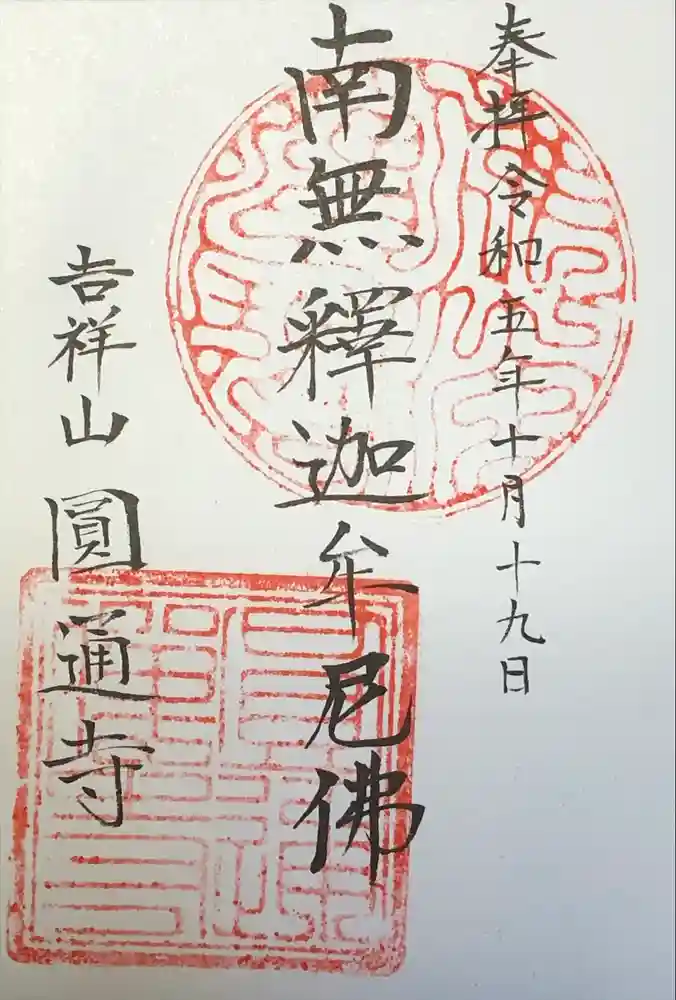 奉拝令和五年十月十九日
南無釋迦牟尼佛
吉祥山圓通寺